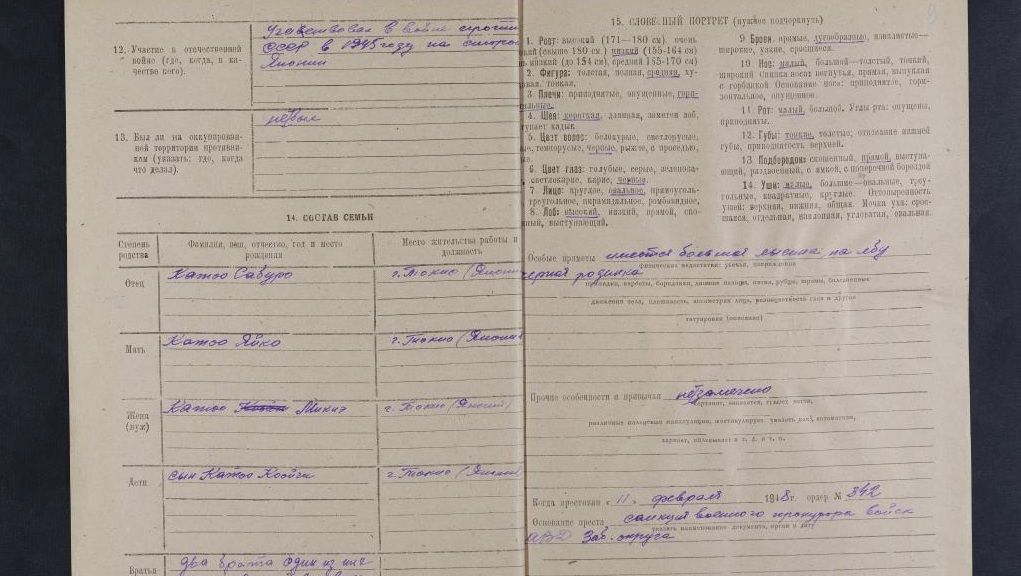 12. Участие в отечественной
войне (где, когда, в ка-
честве кого).
Участвовал в войне против
СССР в 1945 году на стороне
Японии
13. Был ли на оккупирован-
ной территории противни-
ком (указать: где, когда
что делал).
не был
14. СОСТАВ СЕМЬИ
Степень
родства
Фамилия, имя, отчество, год и место
рождения
Место жительства работы и
должность
Отец
Катоо Сабуро
г. Токио (Япония
Мать
Катоо Яйко
г. Токио (Япония
Жена
(муж)
Катоо Микиэ
г. Токио (Япония)
Дети
сын Катоо Коойчи
г. Токио (Япония
Братья
два брата один из них
15. СЛОВЕСНЫЙ ПОРТРЕТ (нужное подчеркнуть)
1. Рост: высокий (171—180 см). очень
кий (свыше 180 см) низкий (155-164 см)
низкий (до 154 см), средний 165-170 см)
2. Фигура: толстая, полная, средняя, ху-
тонкая.
3. Плечи: приподнятые, опущенные, гори-
тальные.
4. Шея: короткая, длинная, заметен зоб,
тупает кадык
5. Цвет волос: белокурые, светлорусые,
темнорусые, черные, рыжие, с проседью,
6. Цвет глаз: голубые, серые, зеленова-
светлокарие, карие, черные.
7. Лицо: круглое, овальное, прямоуголь-
треугольное, пирамидальное, ромбовидное.
8. Лоб: высокий, низкий, прямой, ско-
ный, выступающий.
9 Брови: прямые, дугообразные, извилистые—
широкие, узкие, сросшиеся.
10 Нос: малый, большой—толстый, тонкий,
широкий Спинка носа: вогнутая, прямая, выпуклая
с горбинкой Основание носа: приподнятое, гори-
зонтальное, опущенное.
11. Рот: малый, большой. Углы рта: опущены,
приподняты.
12. Губы: тонкие, толстые, отвисание нижней
губы, приподнятость верхней.
13. Подбородок: скошенный, прямой, выступа-
ющий, раздвоенный, с ямкой, с поперечной бороздой
14. Уши: малые, большие—овальные, треу-
гольные, квадратные, круглые. Оттопыренность
ушей: верхняя, нижняя, общая. Мочка уха: срос-
шаяся, отдельная, наклонная, угловатая, овальная.
Особые приметы имеется большая лысина на лбу
физические недостатки: увечья, повреждения
черная родинка
бородавки, лишние пальцы, пятна, рубцы, шрамы,
движения тела, плешивость, асимметрия лица, разноцветность глаз и другие
татуировка (описание)
Прочие особенности и привычки не замечено
картавит, заикается, грызет ногти,
жестикулирует
Когда арестован « 11 » февраля 1948 г. ордер № 342
Основание ареста санкция военного прокурора войск
указать наименование документа, орган и дату
МВД Заб. округа